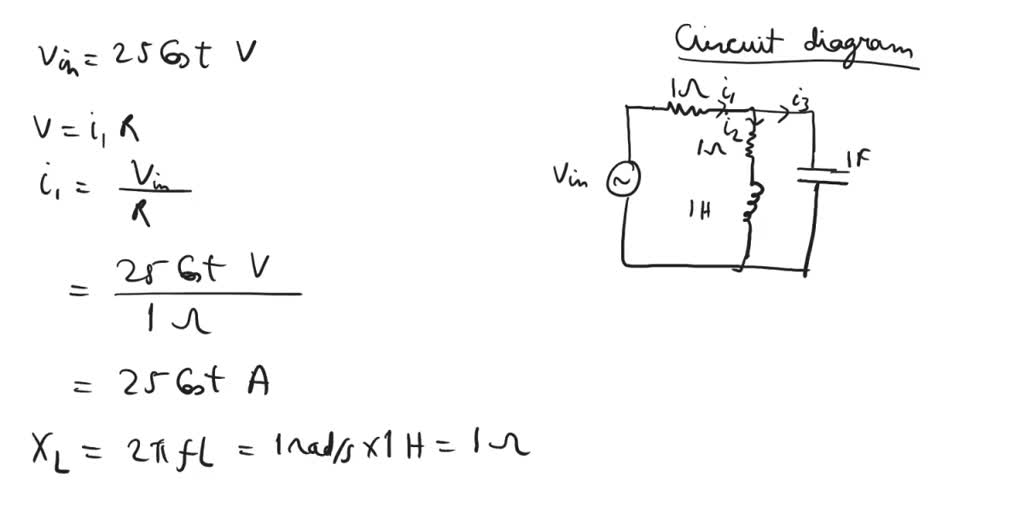 Vin = 25 Cos t V
V = i1 R
i1 = Vin / R
= 25 Cos t V / 1 Ω
= 25 Cos t A
XL = 2π fL = 1 rad/s × 1 H = 1 Ω
Circuit diagram
1Ω i1 i3
i2
1Ω
1F
Vin ~
1H